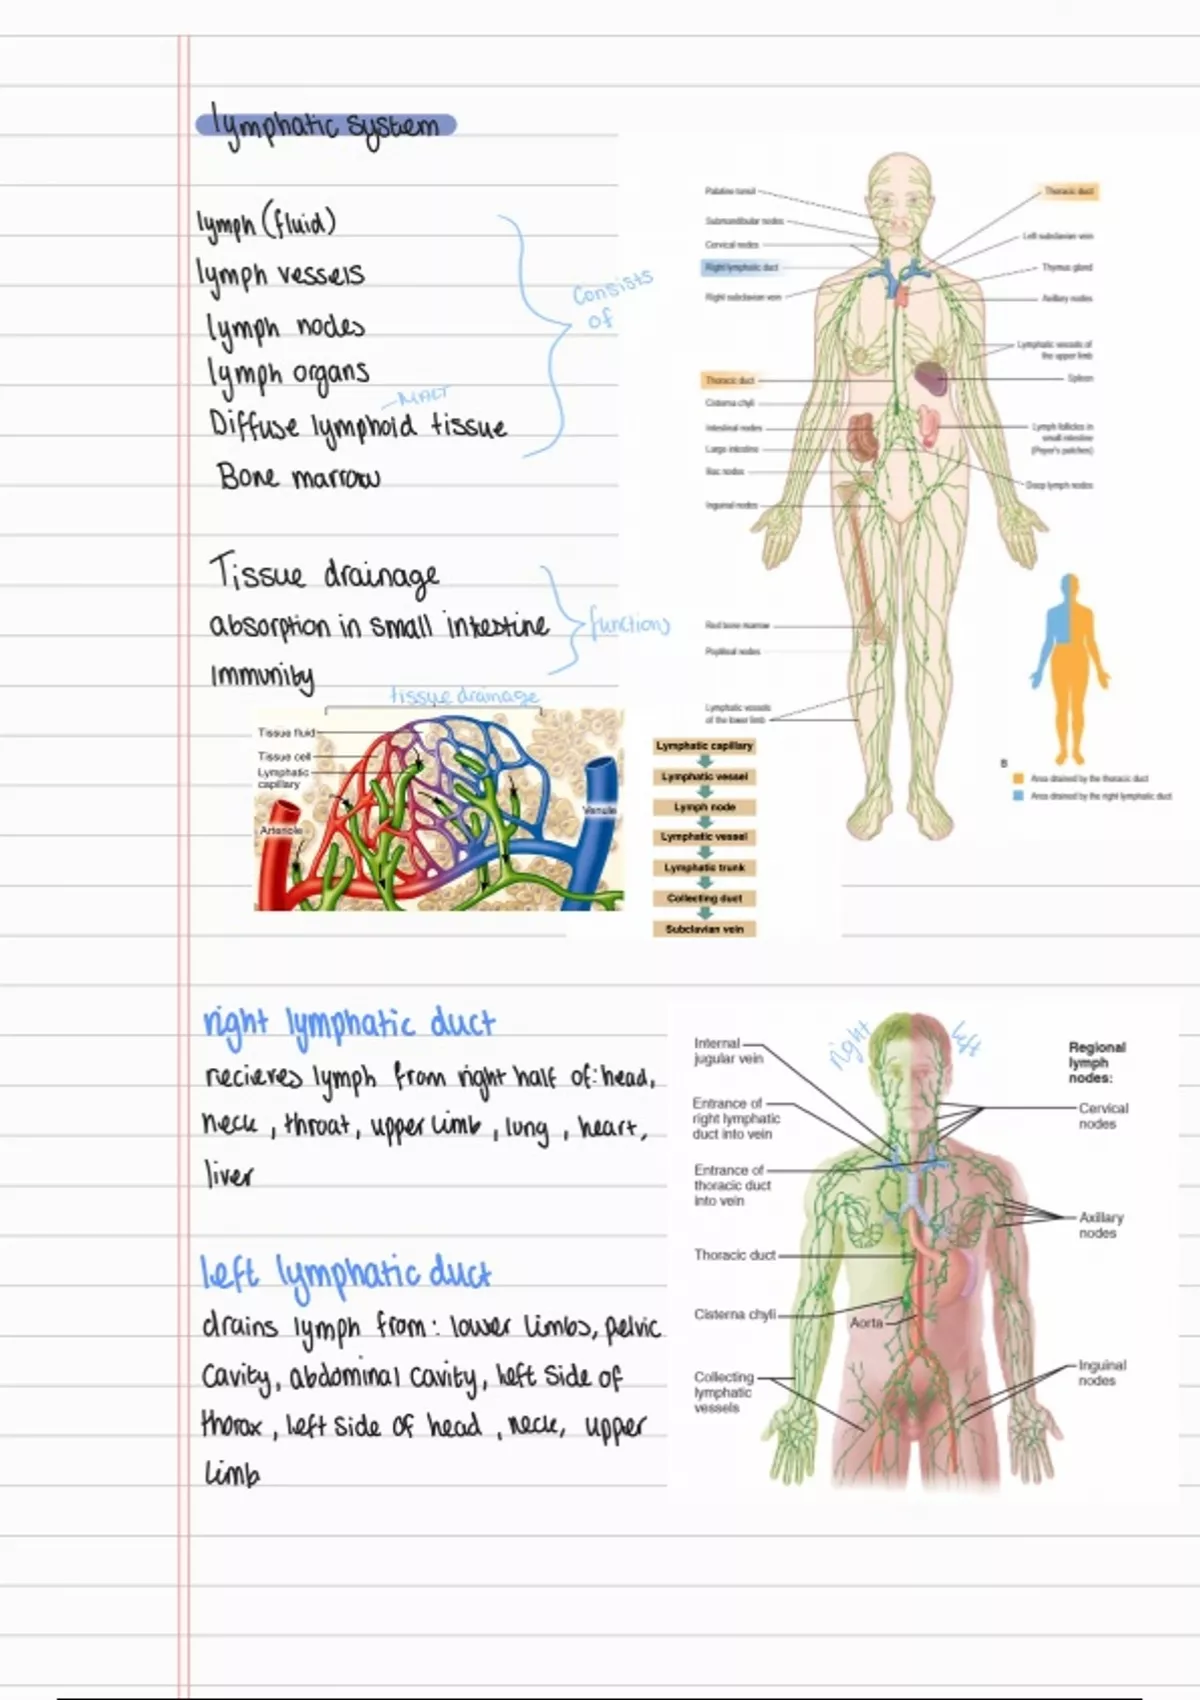 lymphatic system
lymph (fluid)
lymph vessels
lymph nodes
lymph organs
MALT
Diffuse lymphoid tissue
Bone marrow
Consists
of
Tissue drainage
absorption in small intestine
Immunity
functions
Palatine tonsil
Submandibular nodes
Cervical nodes
Right lymphatic duct
Right subclavian vein
Thoracic duct
Cisterna chyli
Intestinal nodes
Large intestine
Iliac nodes
Inguinal nodes
Red bone marrow
Popliteal nodes
Lymphatic vessels
of the lower limb
Thoracic duct
Left subclavian vein
Thymus gland
Axillary nodes
Lymphatic vessels of
the upper limb
Spleen
Lymph follicles in
small intestine
(Peyer's patches)
Deep lymph nodes
B
Area drained by the thoracic duct
Area drained by the right lymphatic duct
tissue drainage
Tissue fluid
Tissue cell
Lymphatic
capillary
Arteriole
Venule
Lymphatic capillary
Lymphatic vessel
Lymph node
Lymphatic vessel
Lymphatic trunk
Collecting duct
Subclavian vein
right lymphatic duct
recieves lymph from right half of: head,
neck, throat, upper limb, lung, heart,
liver
left lymphatic duct
drains lymph from: lower limbs, pelvic
cavity, abdominal cavity, left side of
thorax, left side of head, neck, upper
limb
right
left
Internal
jugular vein
Entrance of
right lymphatic
duct into vein
Entrance of
thoracic duct
into vein
Thoracic duct
Cisterna chyli
Aorta
Collecting
lymphatic
vessels
Regional
lymph
nodes:
Cervical
nodes
Axillary
nodes
Inguinal
nodes